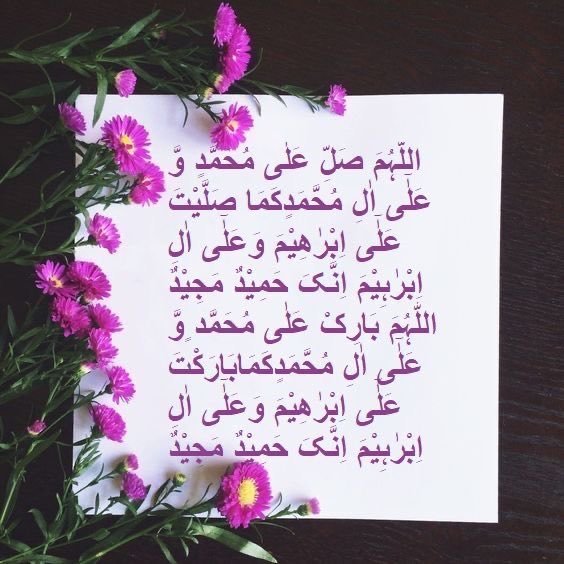 اللّٰہُمَ صَلِّ عَلٰی مُحَمَّدٍ وَّ
عَلٰٓی اٰلِ مُحَّمَدٍکَمَا صَلَّیْتَ
عَلٰٓی اِبْرٰھِیْمَ وَعَلٰٓی اٰلِ
اِبْرٰہِیْمَ اِنَّکَ حَمِیْدٌ مَجِیْدٌ
اللّٰہُمَّ بَارِکْ عَلٰی مُحَمَّد ٍوَّ
عَلٰٓی اٰلِ مُحَّمَدٍکَمابَارَکْتَ
عَلٰٓی اِبْرٰھِیْمَ وَعَلٰٓی اٰلِ
اِبْرٰہِیْمَ اِنَّکَ حَمِیْدٌ مَجِیْدٌ